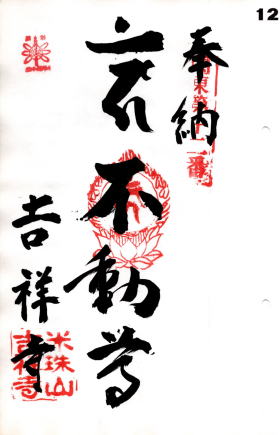 12
奉納
不動尊
吉祥寺
米珠山
吉祥寺